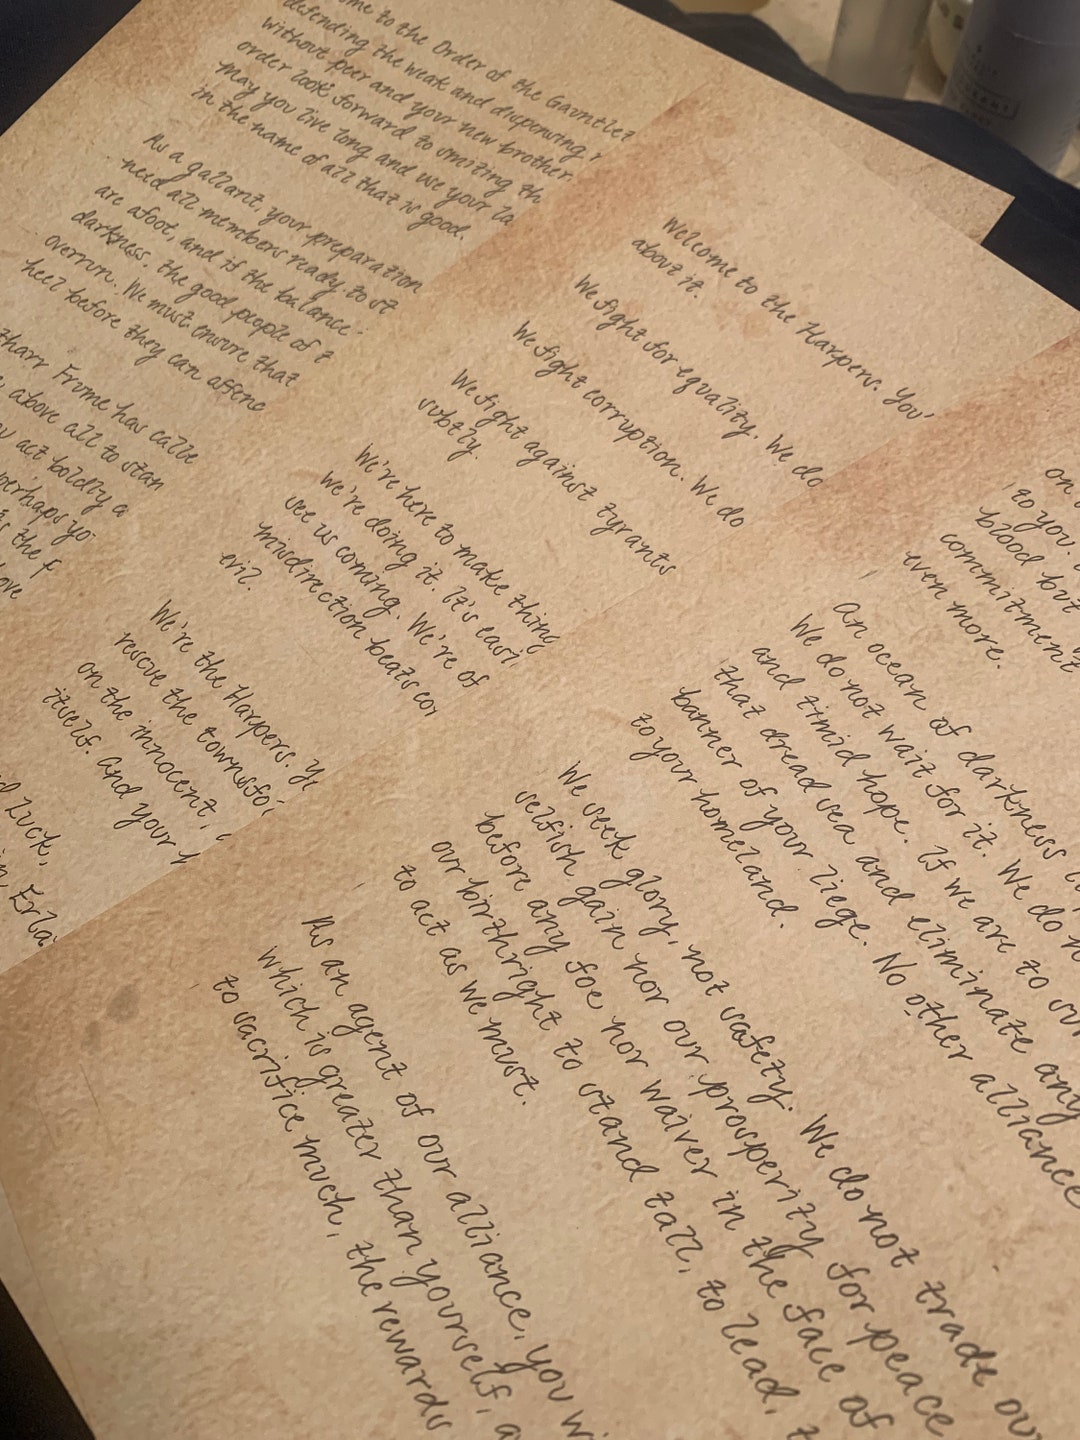 to the Order of the Gauntlet
defending the weak and dispensing
without peer and your new brother
order look forward to smiting th
may you live long and use your la
in the name of all that is good.
As a gallant, your preparation
need all members ready to st
are afoot, and if the balance
darkness, the good people of t
overrun. We must ensure that
heel before they can affend
tharr Frume has calle
above all to stan
act boldly a
perhaps yo
is the f
love
d Luck,
n, Erla
Welcome to the Harpers. You'
about it.
We fight for equality. We do
We fight corruption. We do
We fight against tyrants
subtly.
We're here to make thing
We're doing it. It's easi
see us coming. We're of
misdirection beats cor
evil.
We're the Harpers. Yo
rescue the townsfo
on the innocent,
itself. And your h
on
to you.
blood but
commitment
even more.
An ocean of darkness
We do not wait for it. We do n
and timid hope. If we are to sur
that dread sea and eliminate any
banner of your liege. No other alliance
to your homeland.
We seek glory, not safety. We do not trade our
selfish gain nor our prosperity for peace
before any foe nor waiver in the face of
our birthright to stand tall, to lead, t
to act as we must.
As an agent of our alliance, you wi
which is greater than yourself, a
to sacrifice much, the rewards